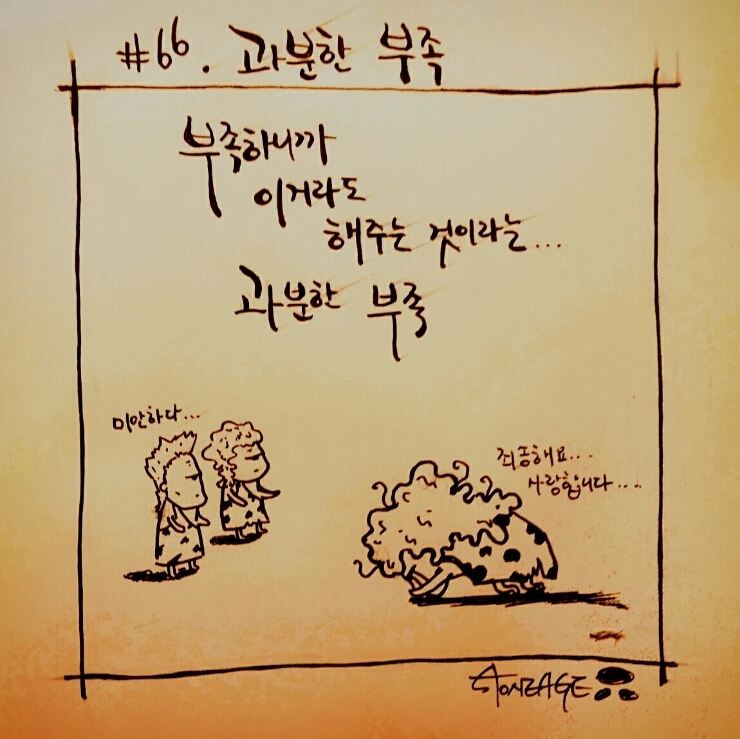 #66. 과분한 부족
부족하니까
이거라도
해주는 것이라는...
과분한 부족
미안하다...
죄송해요...
사랑합니다...
STONEAGE